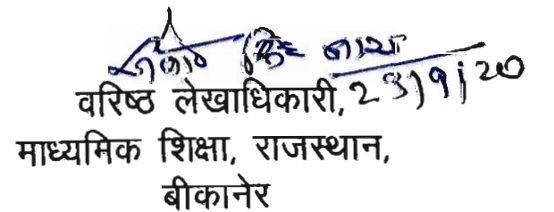 वरिष्ठ लेखाधिकारी, 23/9/20
माध्यमिक शिक्षा, राजस्थान,
बीकानेर